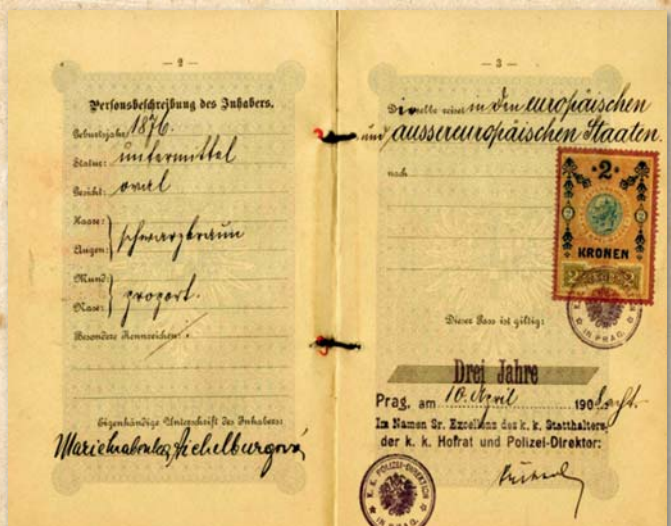 — 2 —
Personsbeschreibung des Inhabers.
Geburtsjahr: 1876.
Statur: untermittel
Gesicht: oval
Haare:
Augen: schwarzbraun
Mund:
Nase: proport.
Besondere Kennzeichen: .
Eigenhändige Unterschrift des Inhabers:
— 3 —
Dieselbe reiset in den europäischen
und aussereuropäischen Staaten.
nach
2
2 2
KRONEN
2 2
IN PRAG.
Dieser Pass ist giltig:
Drei Jahre
Prag, am 10. April 190 8 acht.
Im Namen Sr. Excellenz des k. k. Statthalters,
der k. k. Hofrat und Polizei-Direktor:
K. K. POLIZEI-DIREKTION
IN PRAG.